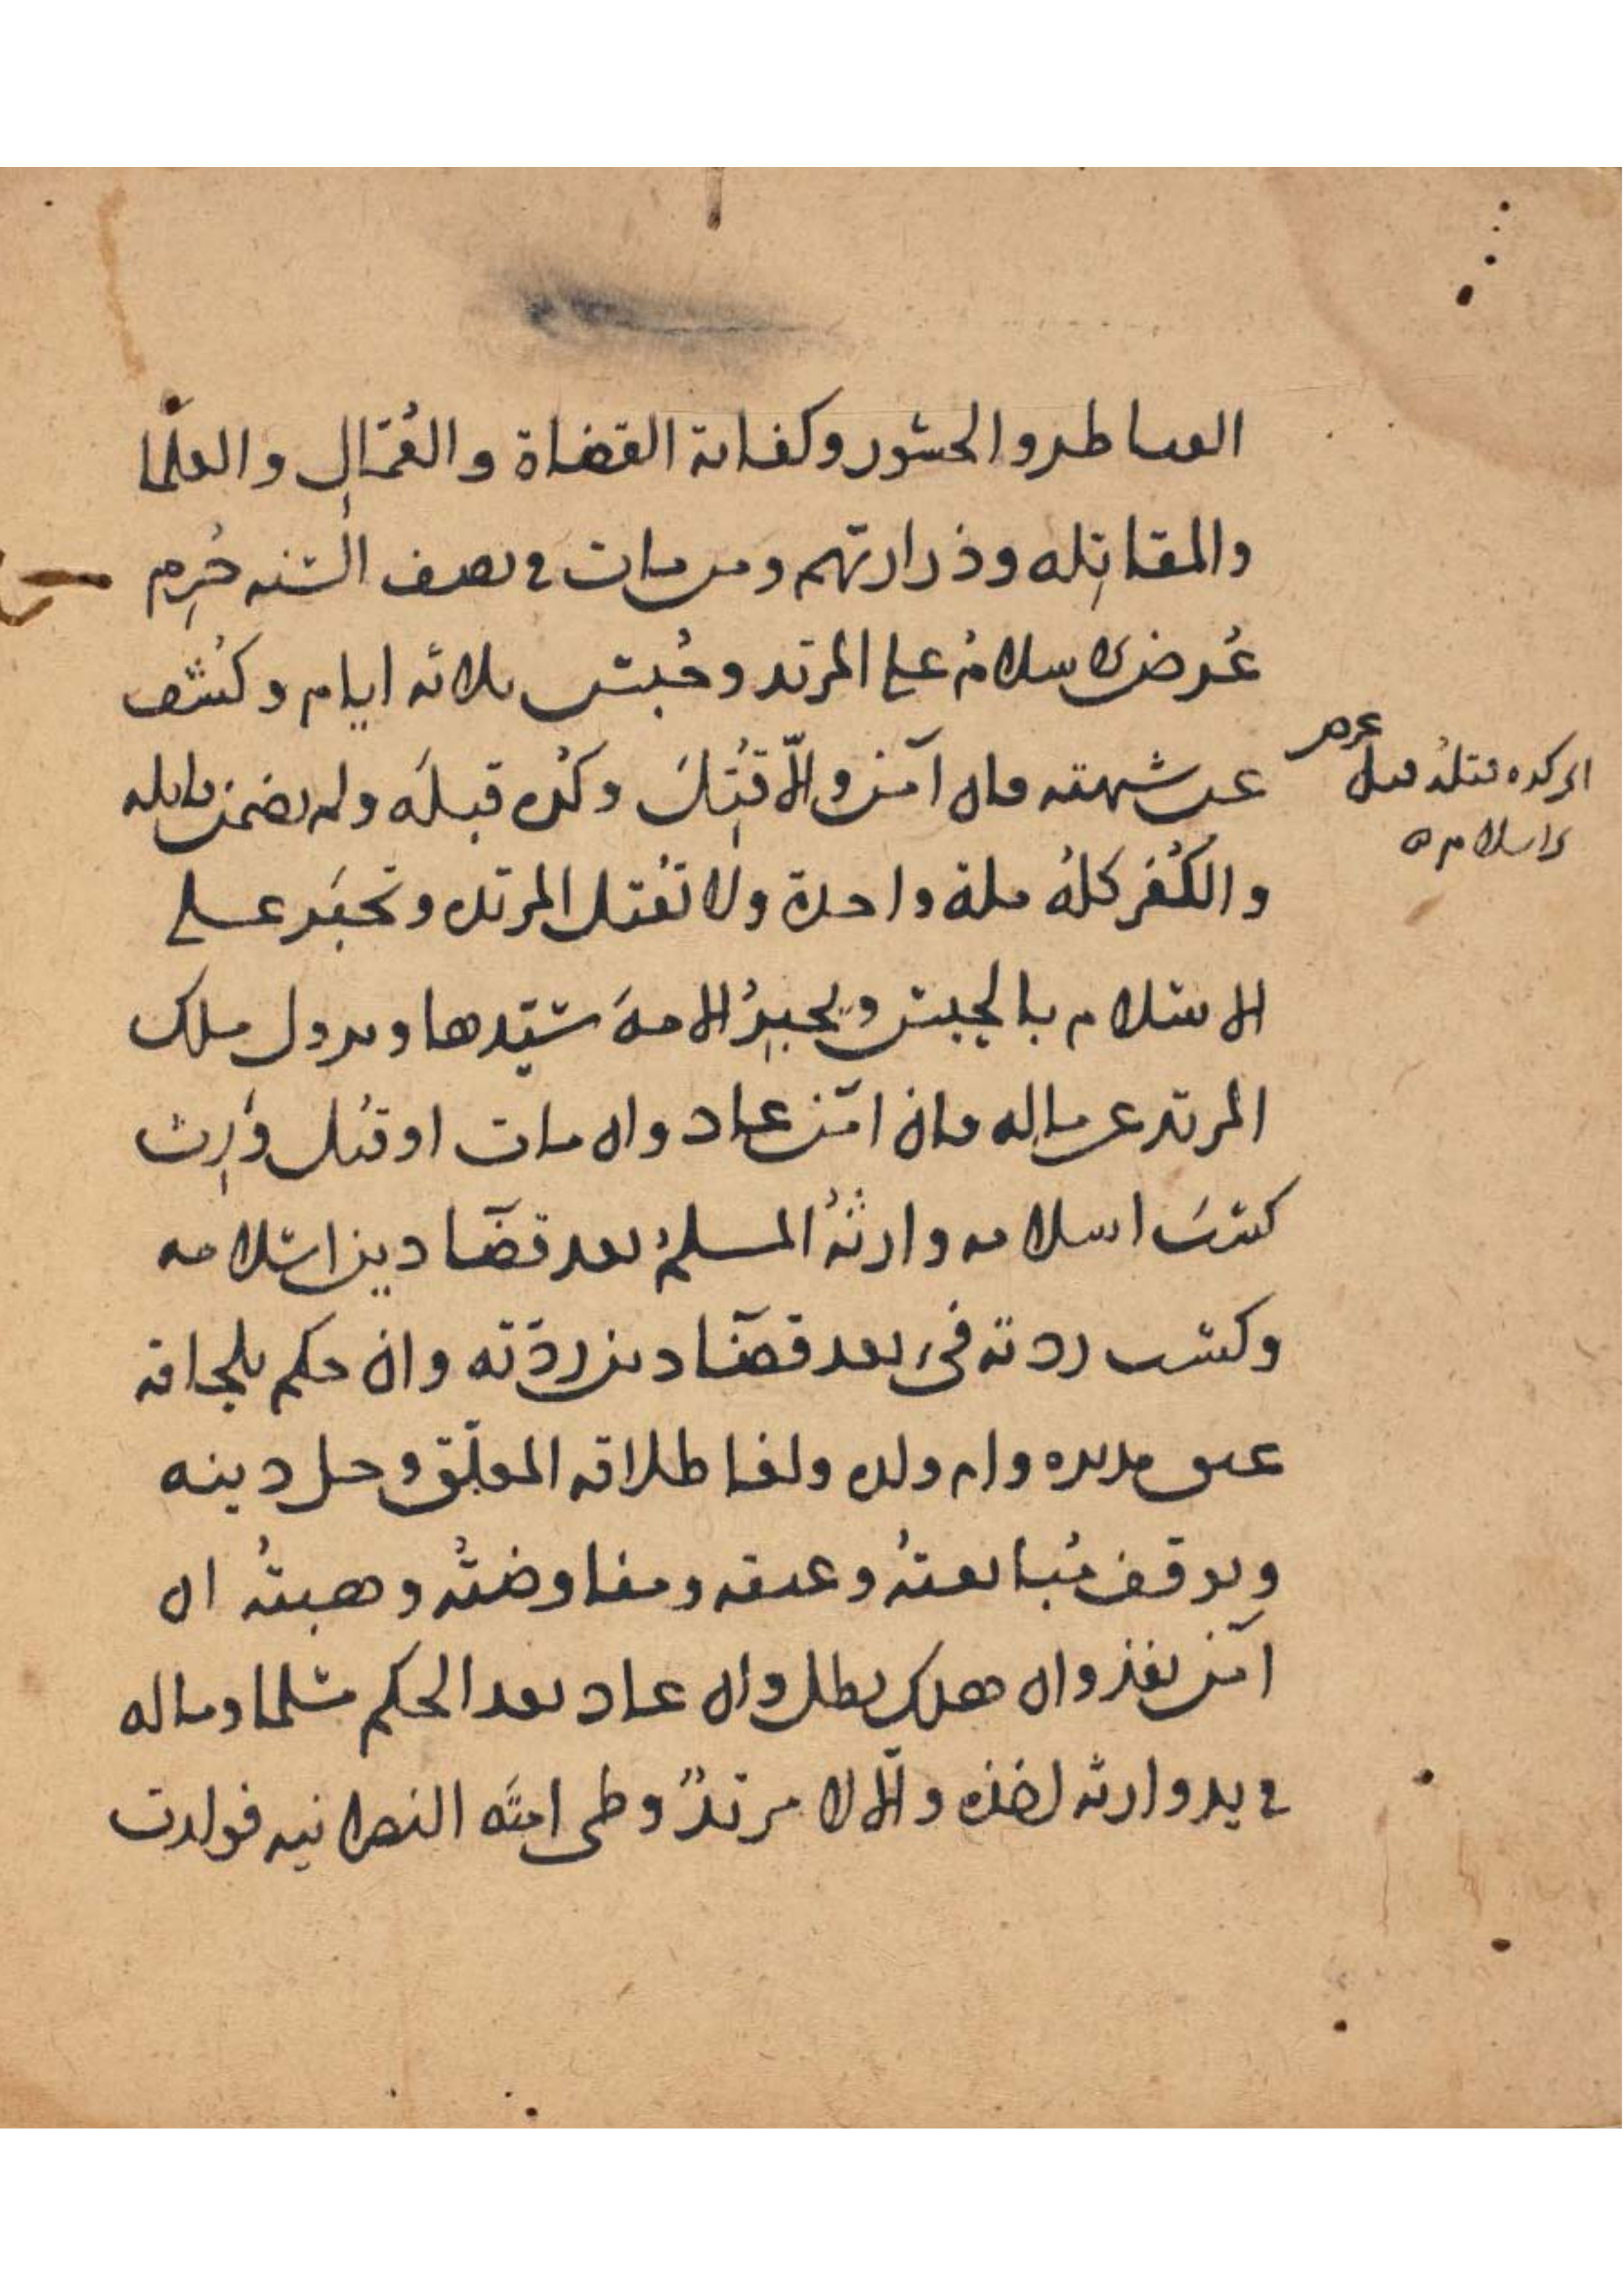 القناطر والجسور وكفاية القضاة والعُمّال والعلمَا
والمقاتِله وذراريهم ومن مات في نصف السنه حُرِم
عُرض الاسلامُ على المرتد وحُبس ثلاثه ايام وكُشف
عن شبهته فان آمن والّا قُتِلَ وكُره قبلَه ولم يضمن قاتله
اى كره قتلهُ قبل عرض
الاسلام ه
والكُفر كلهُ ملة واحدة ولا تُقتل المرتده وتُجبَر على
الاسلام بالحبس ويجبِرُ الامهَ سيّدها ويزول ملك
المرتد عن ماله فان آمن عاد وان مات او قُتل وَرِث
كسبَ اسلامه وارثهُ المسلمُ بعد قضَا دين اسلامه
وكسب ردته فىء بعد قضَا دين ردّته وان حكم بلحاقه
عتق مدبره وام ولده ولغا طلاقه المعلّق وحل دينه
ويوقف مُبايعتهُ وعتقه ومفاوضتُه وهبتهُ ان
آمن نفذ وان هلك بطل وان عاد بعد الحكم مسلما وماله
في يد وارثه اخذه والّا لا مرتدٌ وطى امتَه النصرانيه فولدت